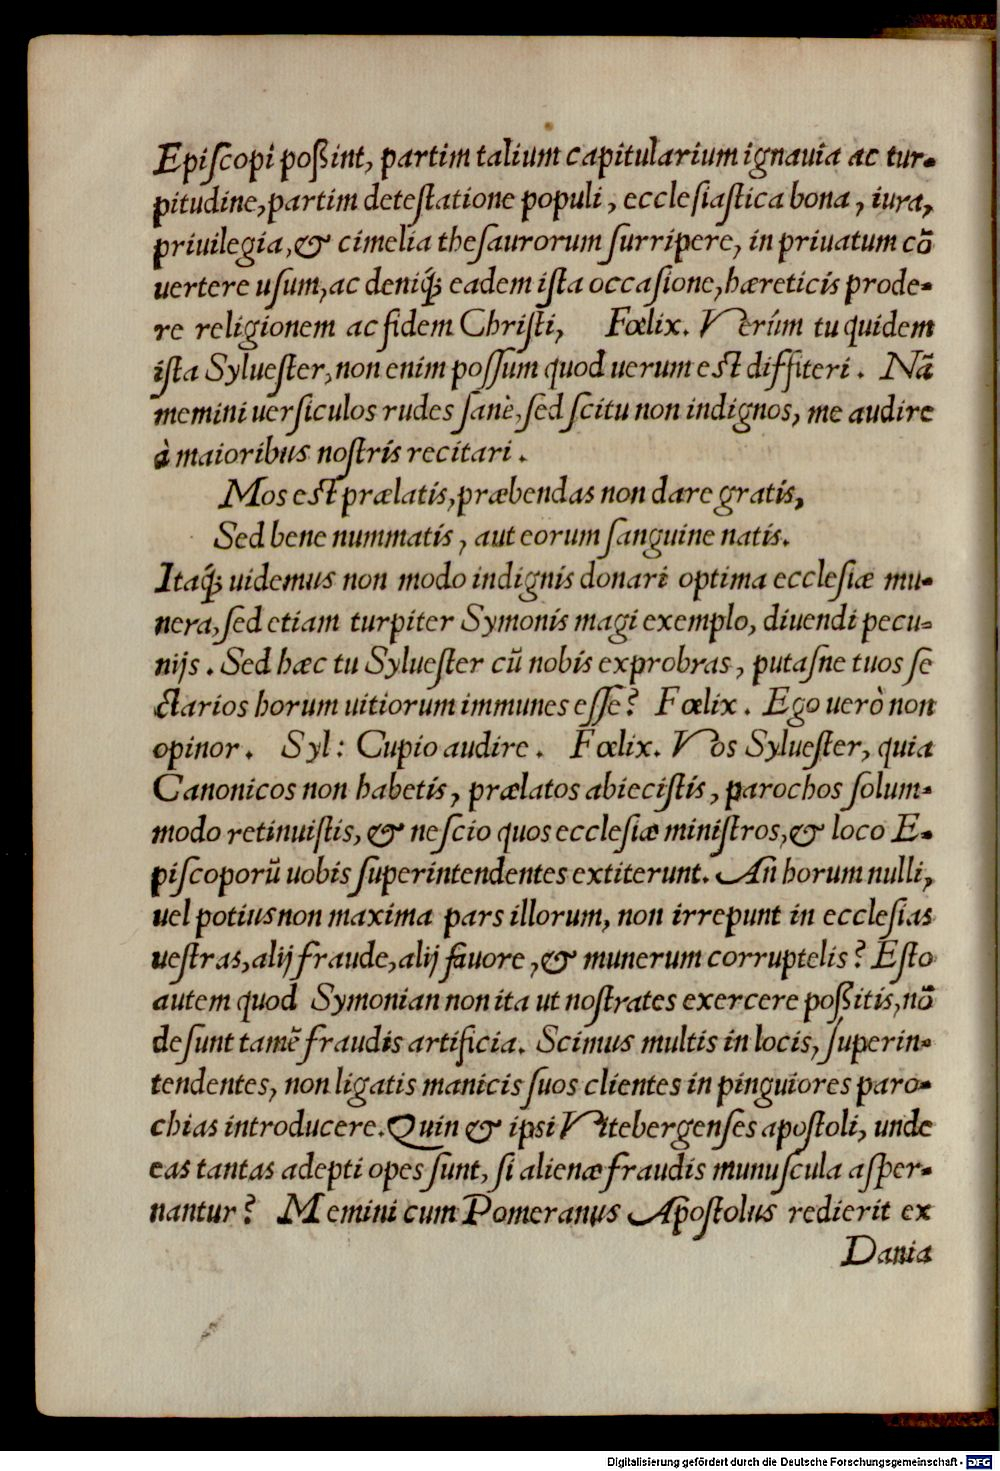 Epiſcopi poßint, partim talium capitularium ignauia ac tur-
pitudine, partim deteſtatione populi, eccleſiaſtica bona, iura,
priuilegia, & cimelia theſaurorum ſurripere, in priuatum cō
uertere uſum, ac deniq́; eadem iſta occaſione, hæreticis prode-
re religionem ac fidem Chriſti, Fœlix. Verúm tu quidem
iſta Sylueſter, non enim poſſum quod uerum eſt diffiteri. Nā
memini uerſiculos rudes ſanè, ſed ſcitu non indignos, me audire
à maioribus noſtris recitari.
Mos eſt prælatis, præbendas non dare gratis,
Sed bene nummatis, aut eorum ſanguine natis.
Itaq́; uidemus non modo indignis donari optima eccleſiæ mu-
nera, ſed etiam turpiter Symonis magi exemplo, diuendi pecu-
nijs. Sed hæc tu Sylueſter cū nobis exprobras, putaſne tuos ſe
ctarios horum uitiorum immunes eſſe? Fœlix. Ego uerò non
opinor. Syl: Cupio audire. Fœlix. Vos Sylueſter, quia
Canonicos non habetis, prælatos abieciſtis, parochos ſolum-
modo retinuiſtis, & neſcio quos eccleſiæ miniſtros, & loco E-
piſcoporū uobis ſuperintendentes extiterunt. An horum nulli,
uel potius non maxima pars illorum, non irrepunt in eccleſias
ueſtras, alij fraude, alij fauore, & munerum corruptelis? Eſto
autem quod Symonian non ita ut noſtrates exercere poßitis, nō
deſunt tamē fraudis artificia. Scimus multis in locis, ſuperin-
tendentes, non ligatis manicis ſuos clientes in pinguiores paro-
chias introducere. Quin & ipſi Vitebergenſes apoſtoli, unde
eas tantas adepti opes ſunt, ſi alienæ fraudis munuſcula aſper-
nantur? Memini cum Pomeranus Apoſtolus redierit ex
Dania
Digitalisierung gefördert durch die Deutsche Forschungsgemeinschaft - DFG